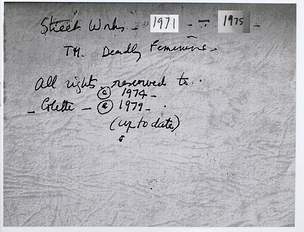 Street Works - 1971 - 1975 -
TH. Deadly Feminine -
All rights reserved to..
© 1974 -
- Colette - © 1979 -
(up to date)